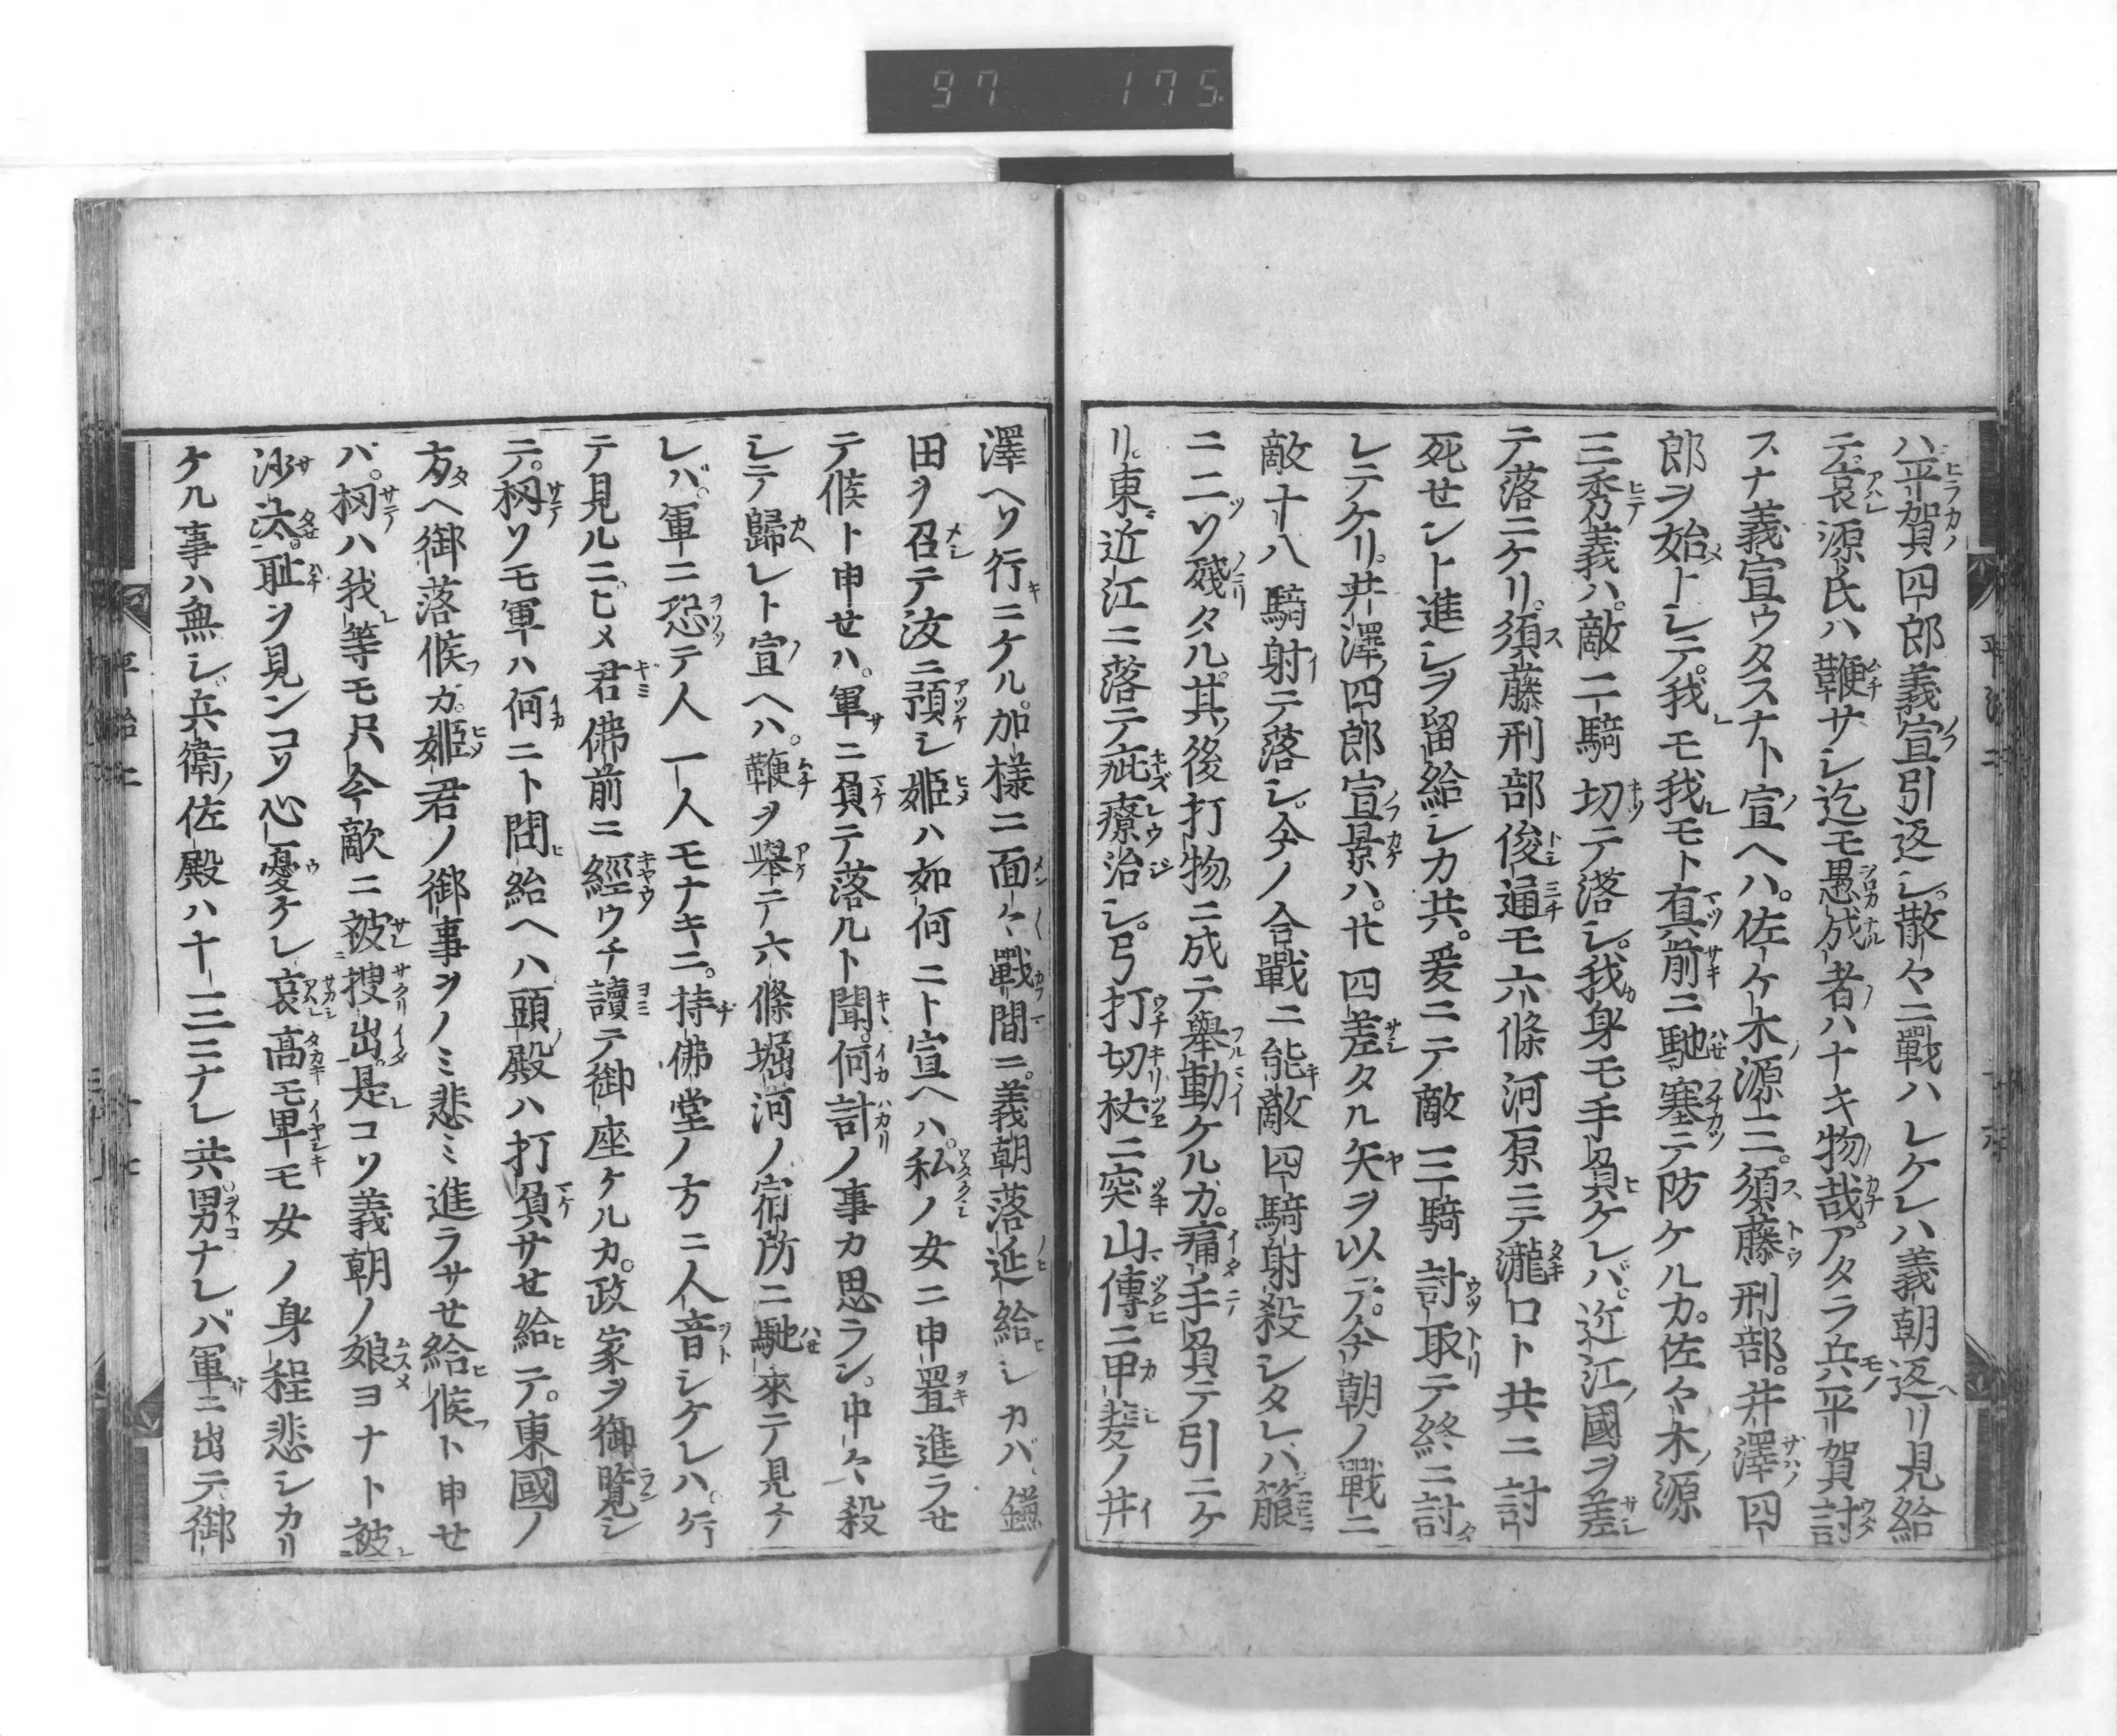 97 175
ハ平賀四郎義宣引返シ。散々ニ戰ハレケレハ義朝返リ見給
テ。哀源氏ハ鞭サシ迄モ愚成者ハナキ物哉。アタラ兵平賀討
スナ義宣ウタスナト宣ヘハ。佐々木源三。須藤刑部。井澤四
郎ヲ始トシテ。我モ我モト眞前ニ馳塞テ防ケルカ。佐々木源
三秀義ハ。敵二騎切テ落シ。我身モ手負ケレバ。近江國ヲ差
テ落ニケリ。須藤刑部俊通モ六條河原ニテ瀧口ト共ニ討
死せント進シヲ留給シカ共。爰ニテ敵三騎討取テ終ニ討
レテケリ。井澤四郎宣景ハ。廿四差タル矢ヲ以テ。今朝ノ戰ニ
敵十八騎射テ落シ。今ノ合戰ニ能敵四騎射殺シタレハ箙
ニ二ツ殘タル。其後打物ニ成テ舉動ケルカ。痛手負テ引ニケ
リ。東近江ニ落テ疵療治シ。弓打切杖ニ突山傳ニ甲斐ノ井
澤ヘソ行ニケル。加樣ニ面々戰間ニ。義朝落延給シカバ。鎌
田ヲ召テ汝ニ預シ姫ハ如何ニト宣ヘハ。私ノ女ニ申置進ラせ
テ候ト申せハ。軍ニ負テ落ルト聞。何計ノ事カ思ラン。中々殺
シテ歸レト宣ヘハ。鞭ヲ舉テ六條堀河ノ宿所ニ馳來テ見テ
レバ。軍ニ恐テ人一人モナキニ。持佛堂ノ方ニ人音シケレハ。行
テ見ルニ。ヒメ君佛前ニ經ウチ讀テ御座ケルカ。政家ヲ御覽シ
テ。扨ソモ軍ハ何ニト問給ヘハ頭殿ハ打負サせ給テ。東國ノ
方ヘ御落候カ。姫君ノ御事ヲノミ悲ミ進ラサせ給候ト申せ
バ。扨ハ我等モ只今敵ニ被搜出是コソ義朝ノ娘ヨナト被
沙汰。耻ヲ見ンコソ心憂ケレ哀高モ卑モ女ノ身程悲シカリ
ケル事ハ無シ。兵衛佐殿ハ十三ニナレ共男ナレバ軍ニ出テ御